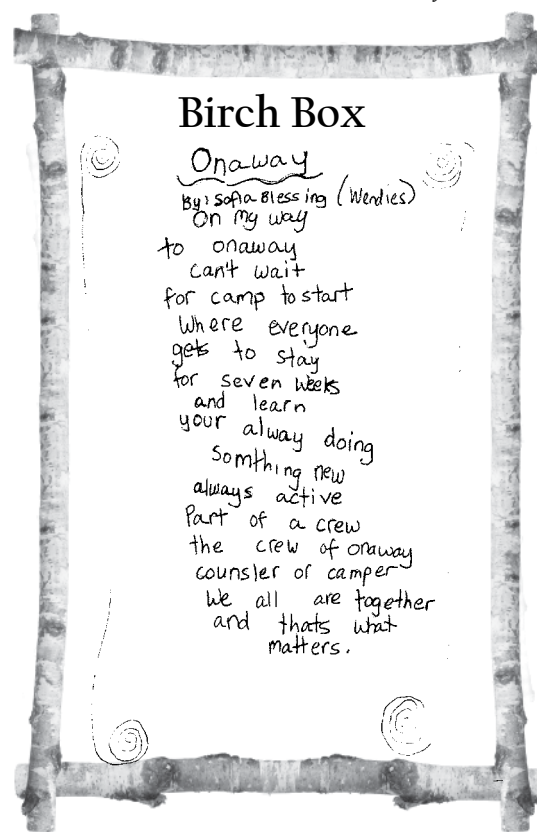 Birch Box
Onaway
By: Sofia Blessing (Wendies)
On my way
to onaway
can't wait
for camp to start
Where everyone
gets to stay
for seven weeks
and learn
your alway doing
somthing new
always active
Part of a crew
the crew of onaway
counsler or camper
We all are together
and thats what
matters.